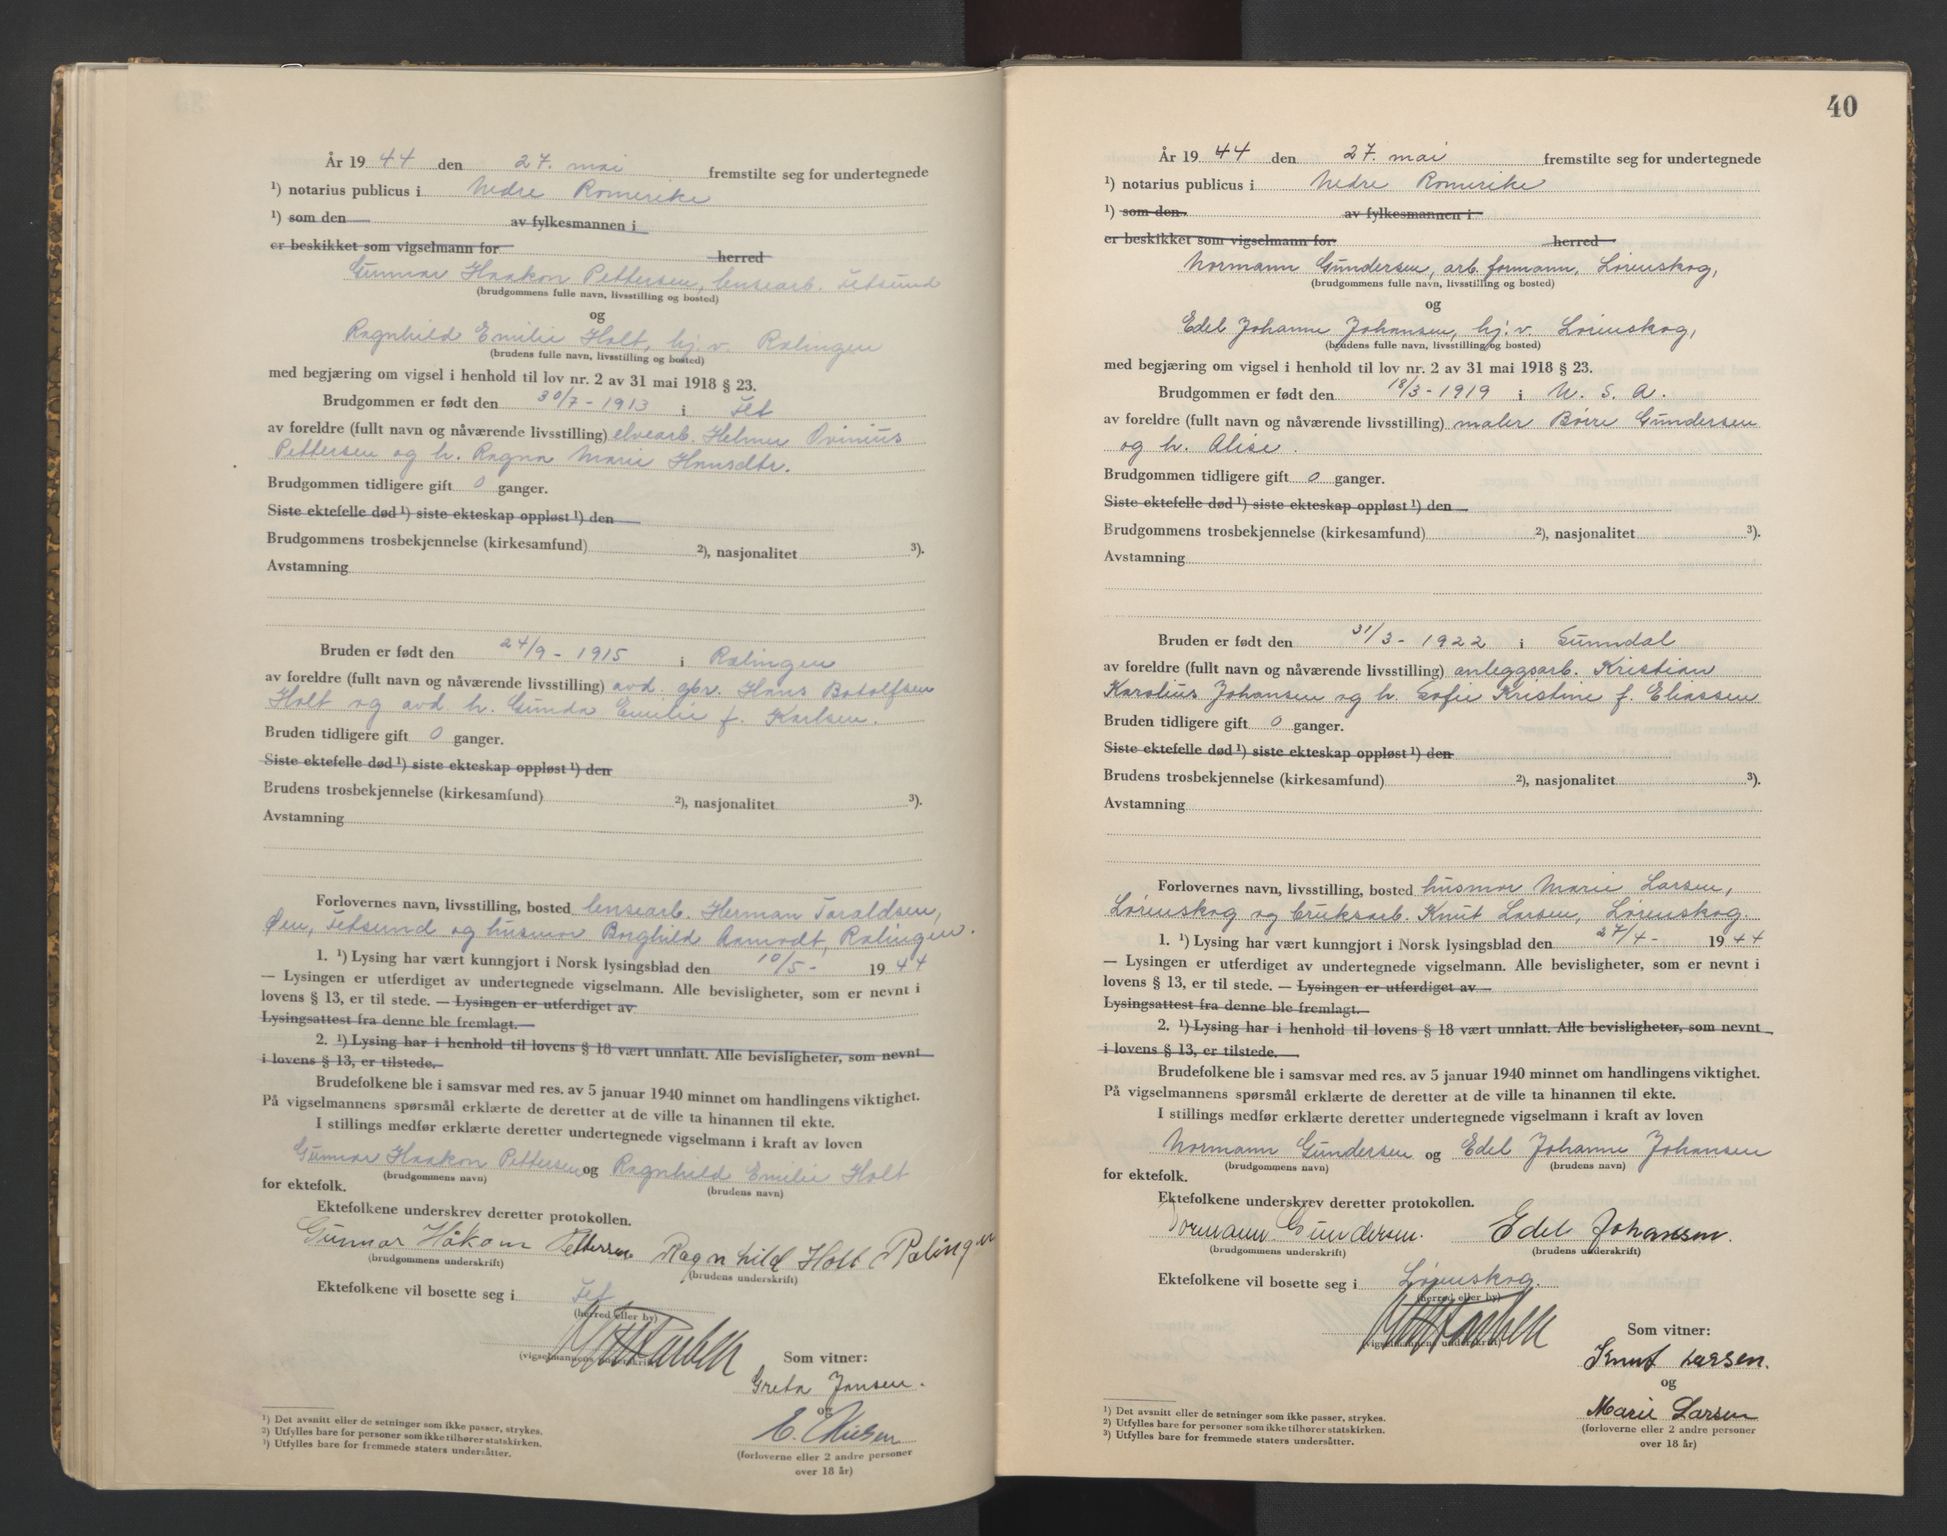 År 1944 den 27. mai fremstilte seg for undertegnede
¹) notarius publicus i Nedre Romerike
¹) som den av fylkesmannen i
er beskikket som vigselmann for herred
Gunnar Haakon Pettersen, lensearb. Fetsund
(brudgommens fulle navn, livsstilling og bosted)
og
Ragnhild Emilie Holt, hj.v. Rælingen
(brudens fulle navn, livsstilling og bosted)
med begjæring om vigsel i henhold til lov nr. 2 av 31 mai 1918 § 23.
Brudgommen er født den 30/7 - 1913 i Fet
av foreldre (fullt navn og nåværende livsstilling) elvearb. Helmer Ovinius
Pettersen og h. Ragna Marie Hansdtr.
Brudgommen tidligere gift 0 ganger.
Siste ektefelle død ¹) siste ekteskap oppløst ¹) den
Brudgommens trosbekjennelse (kirkesamfund) ²), nasjonalitet ³).
Avstamning
Bruden er født den 24/9 - 1915 i Rælingen
av foreldre (fullt navn og nåværende livsstilling) avd. gbr. Hans Botolfsen
Holt og avd. h. Gunda Emilie f. Karlsen.
Bruden tidligere gift 0 ganger.
Siste ektefelle død ¹) siste ekteskap oppløst ¹) den
Brudens trosbekjennelse (kirkesamfund) ²), nasjonalitet ³).
Avstamning
Forlovernes navn, livsstilling, bosted lensearb. Herman Taraldsen,
Øen, Fetsund og husmor Borghild Aamodt, Rælingen.
1. ¹) Lysing har vært kunngjort i Norsk lysingsblad den 10/5 - 1944
— Lysingen er utferdiget av undertegnede vigselmann. Alle bevisligheter, som er nevnt i
lovens § 13, er til stede. — Lysingen er utferdiget av
Lysingsattest fra denne ble fremlagt. —
2. ¹) Lysing har i henhold til lovens § 18 vært unnlatt. Alle bevisligheter, som nevnt
i lovens § 13, er tilstede.
Brudefolkene ble i samsvar med res. av 5 januar 1940 minnet om handlingens viktighet.
På vigselmannens spørsmål erklærte de deretter at de ville ta hinannen til ekte.
I stillings medfør erklærte deretter undertegnede vigselmann i kraft av loven
Gunnar Haakon Pettersen og Ragnhild Emilie Holt
(brudgommens navn) (brudens navn)
for ektefolk.
Ektefolkene underskrev deretter protokollen.
Gunnar Håkon Pettersen Ragnhild Holt Rælingen
(brudgommens underskrift) (brudens underskrift)
Ektefolkene vil bosette seg i Fet
(herred eller by)
(vigselmannens underskrift)
Som vitner:
Greta Jansen.
og
E. Nielsen
(forloverne eller 2 andre personer
over 18 år)
¹) Det avsnitt eller de setninger som ikke passer, strykes.
²) Utfylles bare for personer som ikke tilhører statskirken.
³) Utfylles bare for fremmede staters undersåtter.
40
År 1944 den 27. mai fremstilte seg for undertegnede
¹) notarius publicus i Nedre Romerike
¹) som den av fylkesmannen i
er beskikket som vigselmann for herred
Normann Gundersen, arb. formann, Lørenskog,
(brudgommens fulle navn, livsstilling og bosted)
og
Edel Johanne Johansen, hj.v. Lørenskog,
(brudens fulle navn, livsstilling og bosted)
med begjæring om vigsel i henhold til lov nr. 2 av 31 mai 1918 § 23.
Brudgommen er født den 18/3 - 1919 i U. S. A.
av foreldre (fullt navn og nåværende livsstilling) maler Børre Gundersen
og h. Alise.
Brudgommen tidligere gift 0 ganger.
Siste ektefelle død ¹) siste ekteskap oppløst ¹) den
Brudgommens trosbekjennelse (kirkesamfund) ²), nasjonalitet ³).
Avstamning
Bruden er født den 31/3 - 1922 i Sunndal
av foreldre (fullt navn og nåværende livsstilling) anleggsarb. Kristian
Karolius Johansen og h. Sofie Kristine f. Eliassen
Bruden tidligere gift 0 ganger.
Siste ektefelle død ¹) siste ekteskap oppløst ¹) den
Brudens trosbekjennelse (kirkesamfund) ²), nasjonalitet ³).
Avstamning
Forlovernes navn, livsstilling, bosted husmor Marie Larsen,
Lørenskog og bruksarb. Knut Larsen, Lørenskog.
1. ¹) Lysing har vært kunngjort i Norsk lysingsblad den 27/4 - 1944
— Lysingen er utferdiget av undertegnede vigselmann. Alle bevisligheter, som er nevnt i
lovens § 13, er til stede. — Lysingen er utferdiget av
Lysingsattest fra denne ble fremlagt. —
2. ¹) Lysing har i henhold til lovens § 18 vært unnlatt. Alle bevisligheter, som nevnt
i lovens § 13, er tilstede.
Brudefolkene ble i samsvar med res. av 5 januar 1940 minnet om handlingens viktighet.
På vigselmannens spørsmål erklærte de deretter at de ville ta hinannen til ekte.
I stillings medfør erklærte deretter undertegnede vigselmann i kraft av loven
Normann Gundersen og Edel Johanne Johansen
(brudgommens navn) (brudens navn)
for ektefolk.
Ektefolkene underskrev deretter protokollen.
Normann Gundersen. Edel Johansen.
(brudgommens underskrift) (brudens underskrift)
Ektefolkene vil bosette seg i Lørenskog.
(herred eller by)
(vigselmannens underskrift)
Som vitner:
Knut Larsen.
og
Marie Larsen
(forloverne eller 2 andre personer
over 18 år)
¹) Det avsnitt eller de setninger som ikke passer, strykes.
²) Utfylles bare for personer som ikke tilhører statskirken.
³) Utfylles bare for fremmede staters undersåtter.